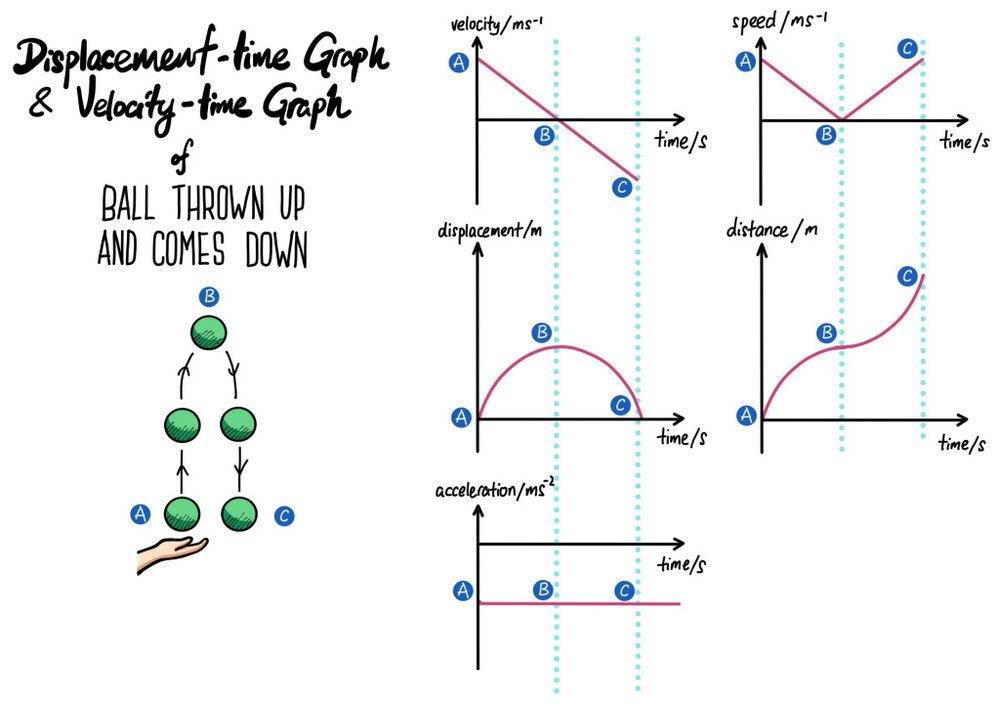 Displacement-time Graph
& Velocity-time Graph
of
BALL THROWN UP
AND COMES DOWN
B
A
C
velocity/ms⁻¹
A
B
C
time/s
displacement/m
A
B
C
time/s
acceleration/ms⁻²
A
B
C
time/s
speed/ms⁻¹
A
B
C
time/s
distance/m
A
B
C
time/s